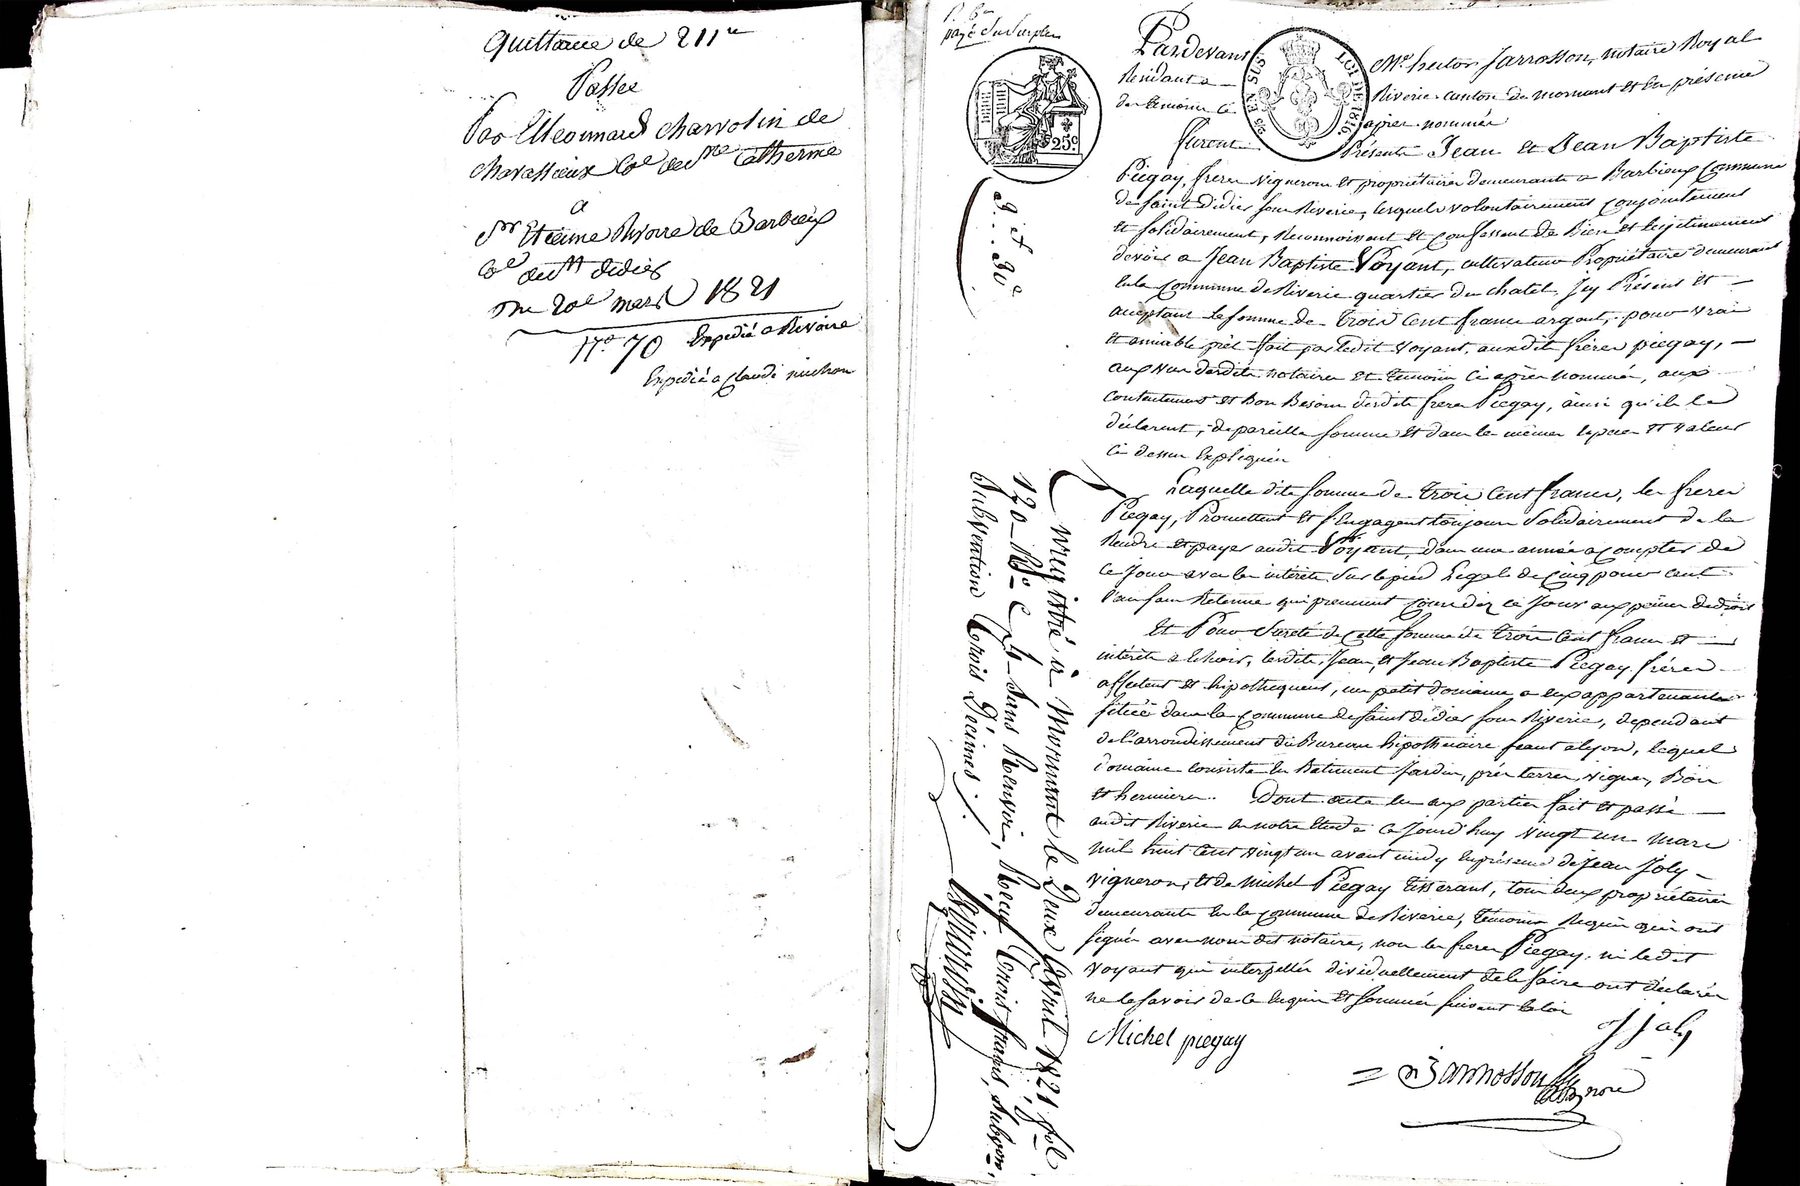 Quittance de 211 #
Passée
Par Etleonnard charvolin de
chavassieux Cne de Ste Catherine
a
Sr Etienne Rivoire de Barbieux
Cne de St didier
Du 20e mars 1821
No 70 Expedié a Rivoire
Expedié a Claude michon
payé du Surplus
Pardevant Me hector Jarrosson, notaire Royal
Résidant a Riverie canton de mornant et en présence
des témoins ci après nommés
25c
25 EN SUS
LOI DE 1816
furent Présents Jean et Jean Baptiste
Piegay, freres vignerons et propriétaires demeurants a Barbieux Commune
de saint didier sous Riverie, lesquels volontairement conjointement
et solidairement, Reconnoissent et confessent de Bien et légitimement
devoir a Jean Baptiste Voyant, cultivateur Propriétaire demeurant
en la commune de Riverie quartier du chatel Icy Présent et
acceptant la somme de trois cent francs argent, pour vrai
et amiable prêt fait par ledit Voyant, auxdits frères piegay,
aux vus desdits notaire et témoins ci après nommés, aux
contentement et Bon Besoin desdits freres Piegay, ainsi qu'ils le
déclarent, de pareille somme et dans les mêmes especes et valeurs
ci dessus Expliquées
Laquelle dite somme de trois cent francs, les freres
Piegay, Promettent et s'engagent toujours Solidairement de la
Rendre et payer audit Voyant, dans une année a compter de
ce Jour avec les interets Sur le pied Légal de cinq pour cent
l'an sans Retenue qui prennent cours dez ce Jour aux peines de droit
Et Pour Sureté de cette somme de trois cent francs et
interets a Echoir, lesdits Jean, et Jean Baptiste Piegay frères
affectent et hipothequent, un petit domaine a eux appartenants
situé dans la commune de saint didier sous Riverie, dependant
de l'arrondissement du Bureau hipothécaire seant a lyon, lequel
domaine consiste En Batiment Jardin, prés terres, vignes, Bois
et hermieres. Dont acte lu aux parties fait et passé
audit Riverie en notre Etude ce Jourd'huy vingt un mars
mil huit cent vingt un avant midy En présence de Jean Joly
vigneron, et de Michel Piegay tisserant, tous deux propriétaires
demeurants En la commune de Riverie, témoins Requis qui ont
signés avec nous dit notaire, non les freres Piegay, ni ledit
Voyant qui interpellés dividuellement de le faire ont déclarés
ne le savoir de ce Enquis et sommés suivant la loi
Michel piegay
J Joly
Jarrosson
Enregistré à Mornant le Deux Avril 1821 fol
120 Ro C 4 Sans Renvoi, Reçu Trois francs, Subvon,
Subvention Trois Décimes